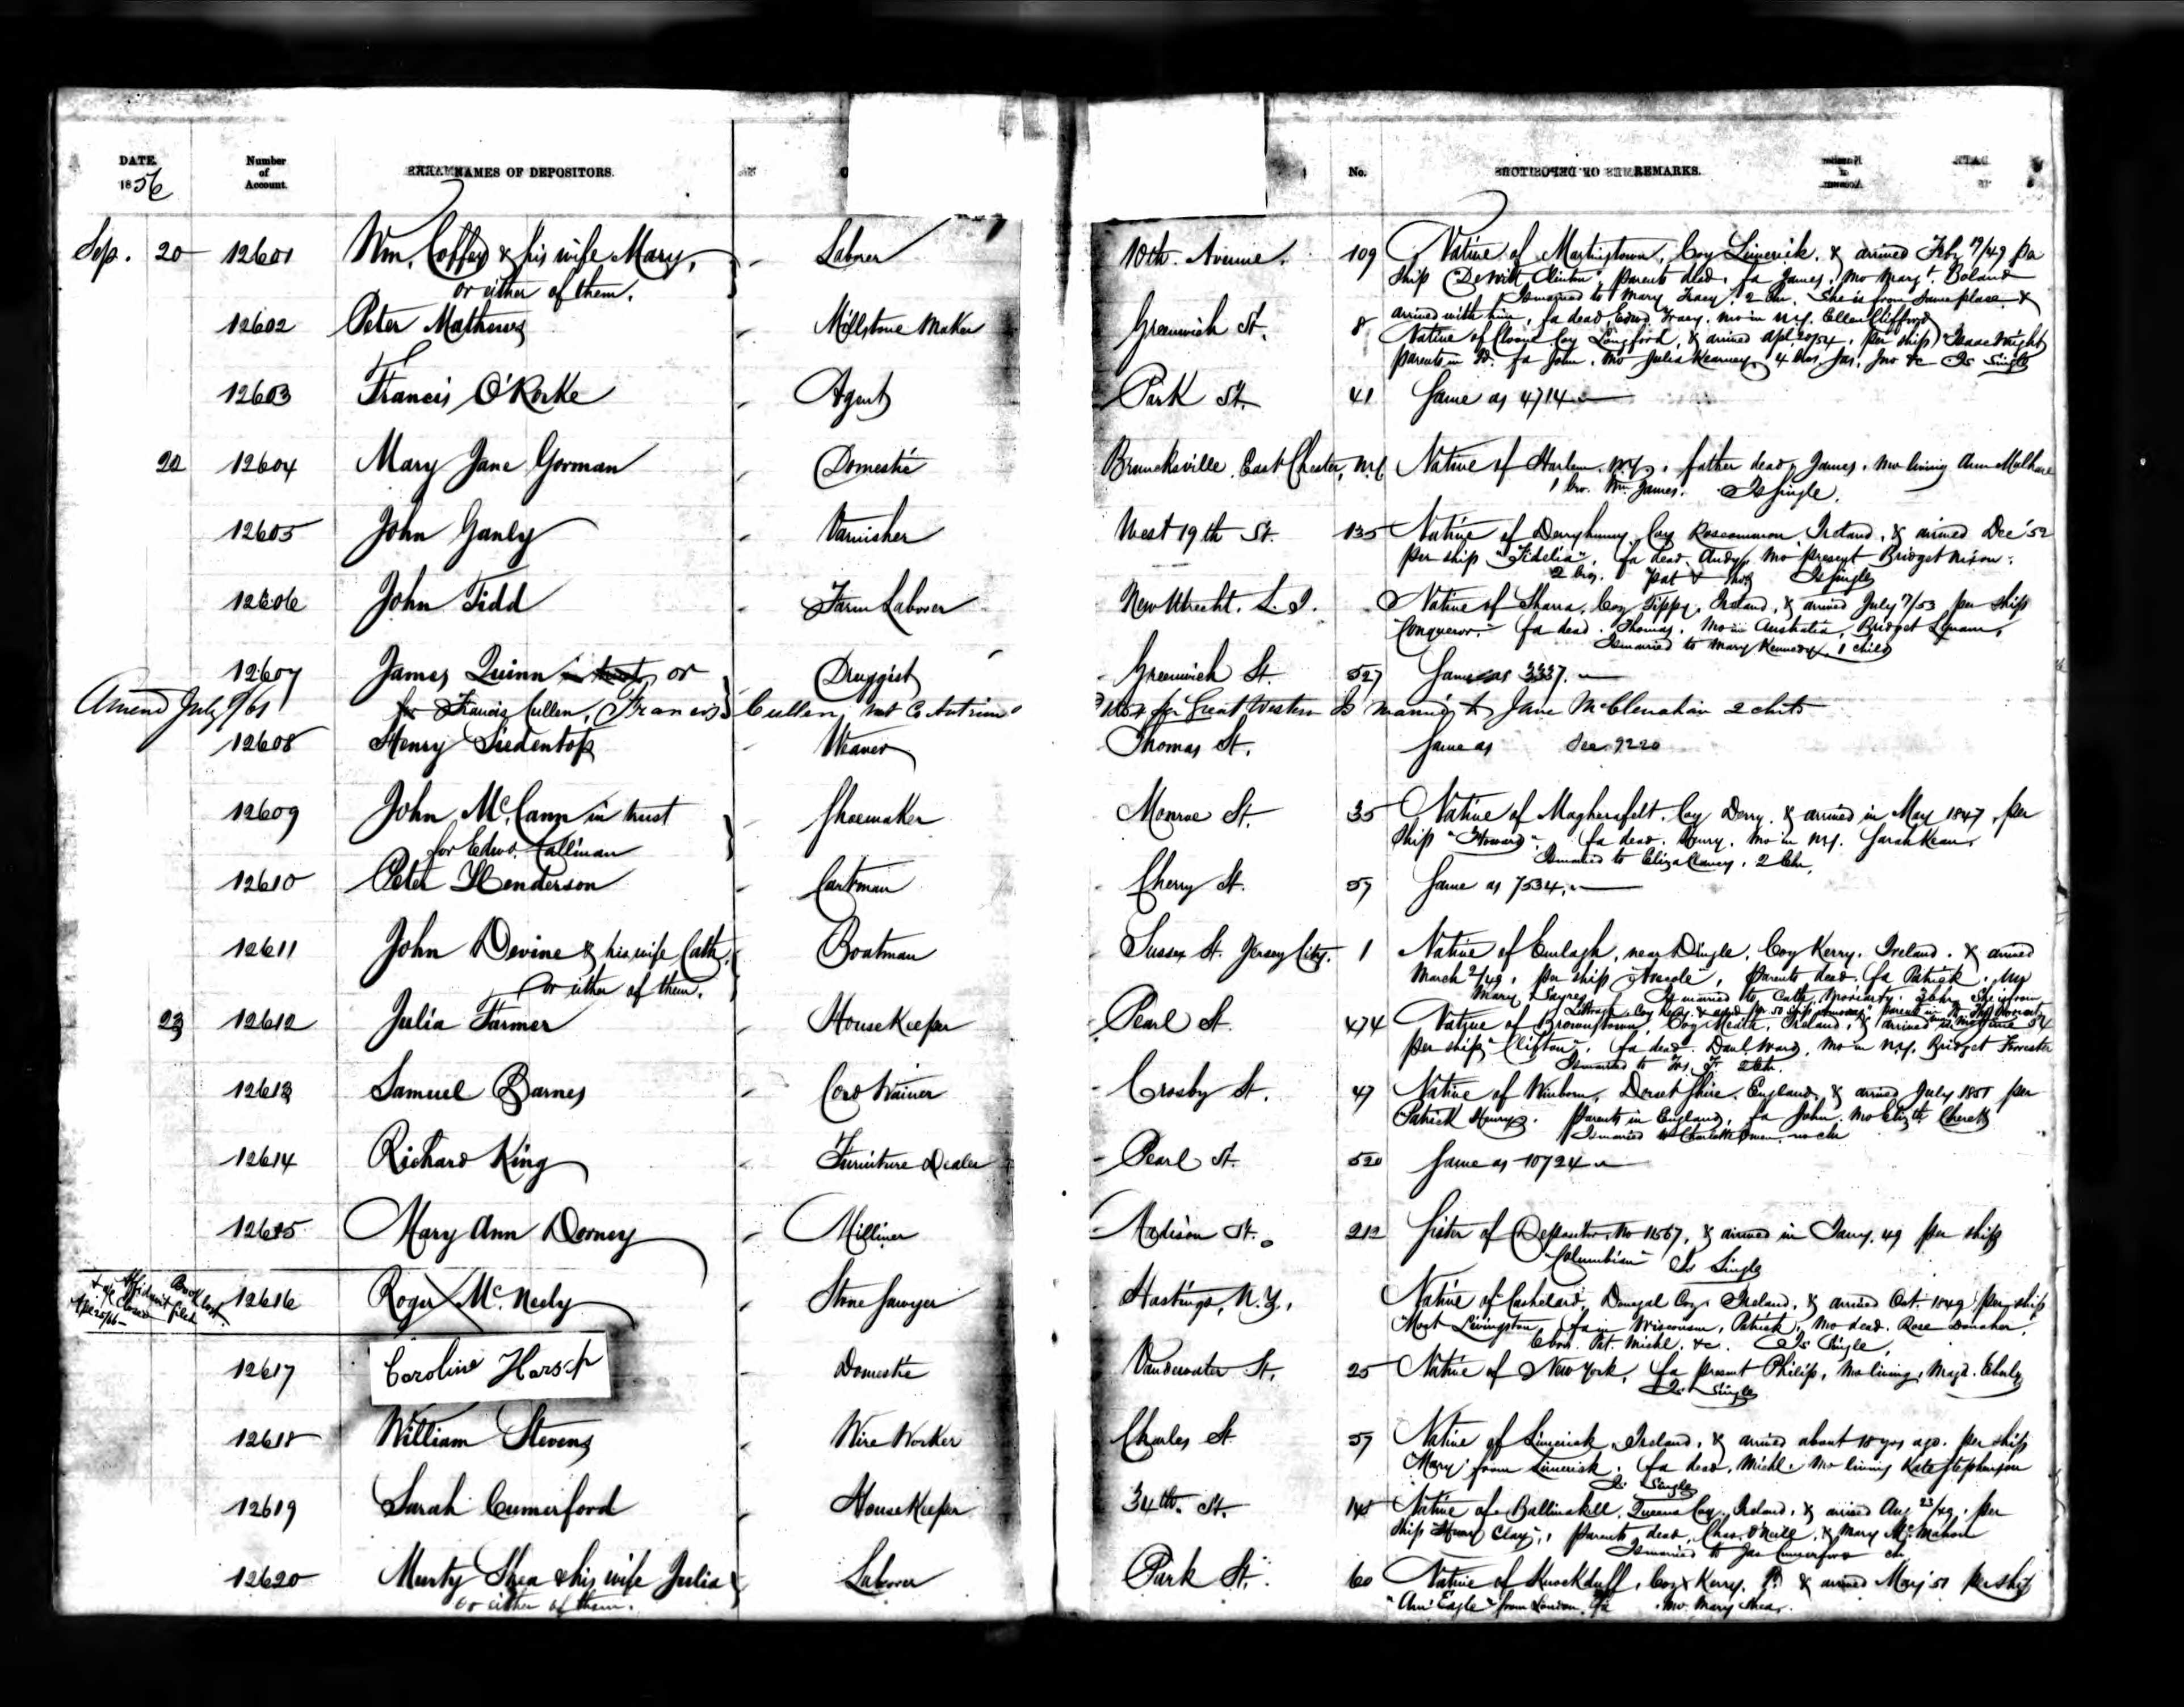 DATE. 1856 Number of Account. NAMES OF DEPOSITORS. No. REMARKS.
Sep. 20 12601 Wm. Coffey & his wife Mary, Laborer 10th. Avenue. 109 Native of Martinstown, Coy Limerick, & arrived Feby 17/49 per
or either of them. ship "DeWitt Clinton", parents dead, fa James, mo Margt. Boland
Is married to Mary Tracy, 2 chn. She is from same place &
arrived with him, fa dead, Edwd Tracy. mo in N.Y. Ellen Clifford
12602 Peter Mathews Millstone Maker Greenwich St. 8 Native of Cloone Coy Longford, & arrived Apl. 20/54, per ship Isaac Wright
parents in Id. fa John, mo Julia Kearney, 4 bros, Jas, Jno &c Is Single
12603 Francis O'Rorke Agent Park St. 41 Same as 4714
22 12604 Mary Jane Gorman Domestic East Chester, N.Y. Native of Harlem. N.Y., father dead, James, mo living Ann
1 bro. Wm James. Is Single.
12605 John Ganly Varnisher West 19th St. 135 Native of Coy Roscommon Ireland, & arrived Dec '52
per ship "Fidelia", fa dead, Andy, mo present Bridget Nixon.
2 bros. Pat & Is Single
12606 John Tidd Farm Laborer New Utrecht. L. I. Native of Coy Tipp. Ireland, & arrived July 7/53 per ship
Conqueror, fa dead. Thomas, mo in Australia, Bridget
Is married to Mary Kennedy, 1 child
12607 James Quinn in trust or Druggist Greenwich St. 527 Same as 3337.
Amend July 9/61 for Francis Cullen, (Francis Cullen, nat Co Antrim Great Western Is married to Jane McClenahan 2 chn
12608 Henry Siedentop Weaver Thomas St. Same as See 9220
12609 John McCann in trust Shoemaker Monroe St. 35 Native of Magherafelt, Coy Derry, & arrived in May 1847, per
for Edwd. Callinan ship "Howard". fa dead. Henry. mo in N.Y. Sarah Kean,
Is married to Eliza Clancy, 2 Chn.
12610 Peter Henderson Cartman Cherry St. 57 Same as 7534.
12611 John Devine & his wife Cath. Boatman Sussex St. Jersey City. 1 Native of Emlagh, near Dingle, Coy Kerry. Ireland. & arrived
or either of them. March 2/49, per ship parents dead. fa Patrick.
Mary Sayres Is married to Cath. Moriarty. She is from
23 12612 Julia Farmer HouseKeeper Pearl St. 474 Native of Brownstown, Coy Meath, Ireland, & arrived
per ship "Clifton", fa dead. Danl. Ward, mo in N.Y. Bridget Forrester
Is married to 2 Chn.
12613 Samuel Barnes Cord Wainer Crosby St. 47 Native of Winborn, Dorset Shire. England, & arrived July 1851 per
"Patrick Henry". parents in England, fa John, mo Elizth
Is married to Charlotte Owen no chn
12614 Richard King Furniture Dealer Pearl St. 520 Same as 10724
12615 Mary Ann Dorney Milliner Madison St. 212 Sister of Depositor No 11567, & arrived in Jany. 49 per ship
"Columbian" Is Single
Affidavit Book lost 12616 Roger McNeely Stone Sawyer Hastings, N.Y. Native of Cashelard, Donegal Coy. Ireland, & arrived Oct. 1849 per ship
Closed filed "Mort Livingston, fa in Wisconsin, Patrick, mo dead. Rose Donaher,
Pat. Michl. &c. Is Single,
12617 Caroline Horsch Domestic Vandewater St. 25 Native of New York, fa present Philip, mo living,
Is Single
12618 William Stevens Wire Worker Charles St. 57 Native of Limerick, Ireland, & arrived about 18 yrs ago. per ship
Mary from Limerick. fa dead, Michl. mo living Kate Stephenson
Is Single
12619 Sarah Cumerford HouseKeeper 34th. St. Native of Ballinakill, Queens Coy, Ireland, & arrived Aug 23/49. per
ship Henry Clay", parents dead, Chas. O'Neill, & Mary McMahon
Is married to Jas Cumerford
12620 Murty Shea & his wife Julia Laborer Park St. 60 Native of Knockduff, Coy Kerry. & arrived May '51 per ship
or either of them. "Am Eagle" from London, fa mo Mary Shea.